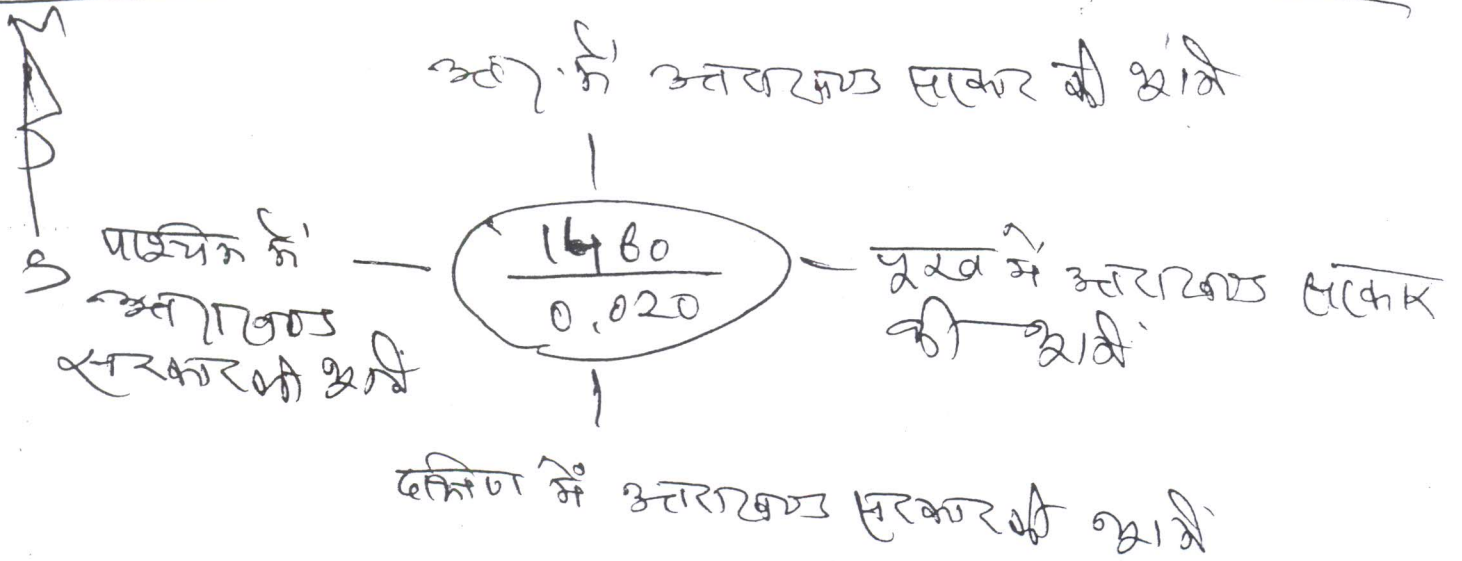 N
उत्तर में उत्तराखण्ड सरकार की भूमि
S
पश्चिम में
उत्तराखण्ड
सरकार की भूमि
1460
0.020
पूरब में उत्तराखण्ड सरकार
की भूमि
दक्षिण में उत्तराखण्ड सरकार की भूमि